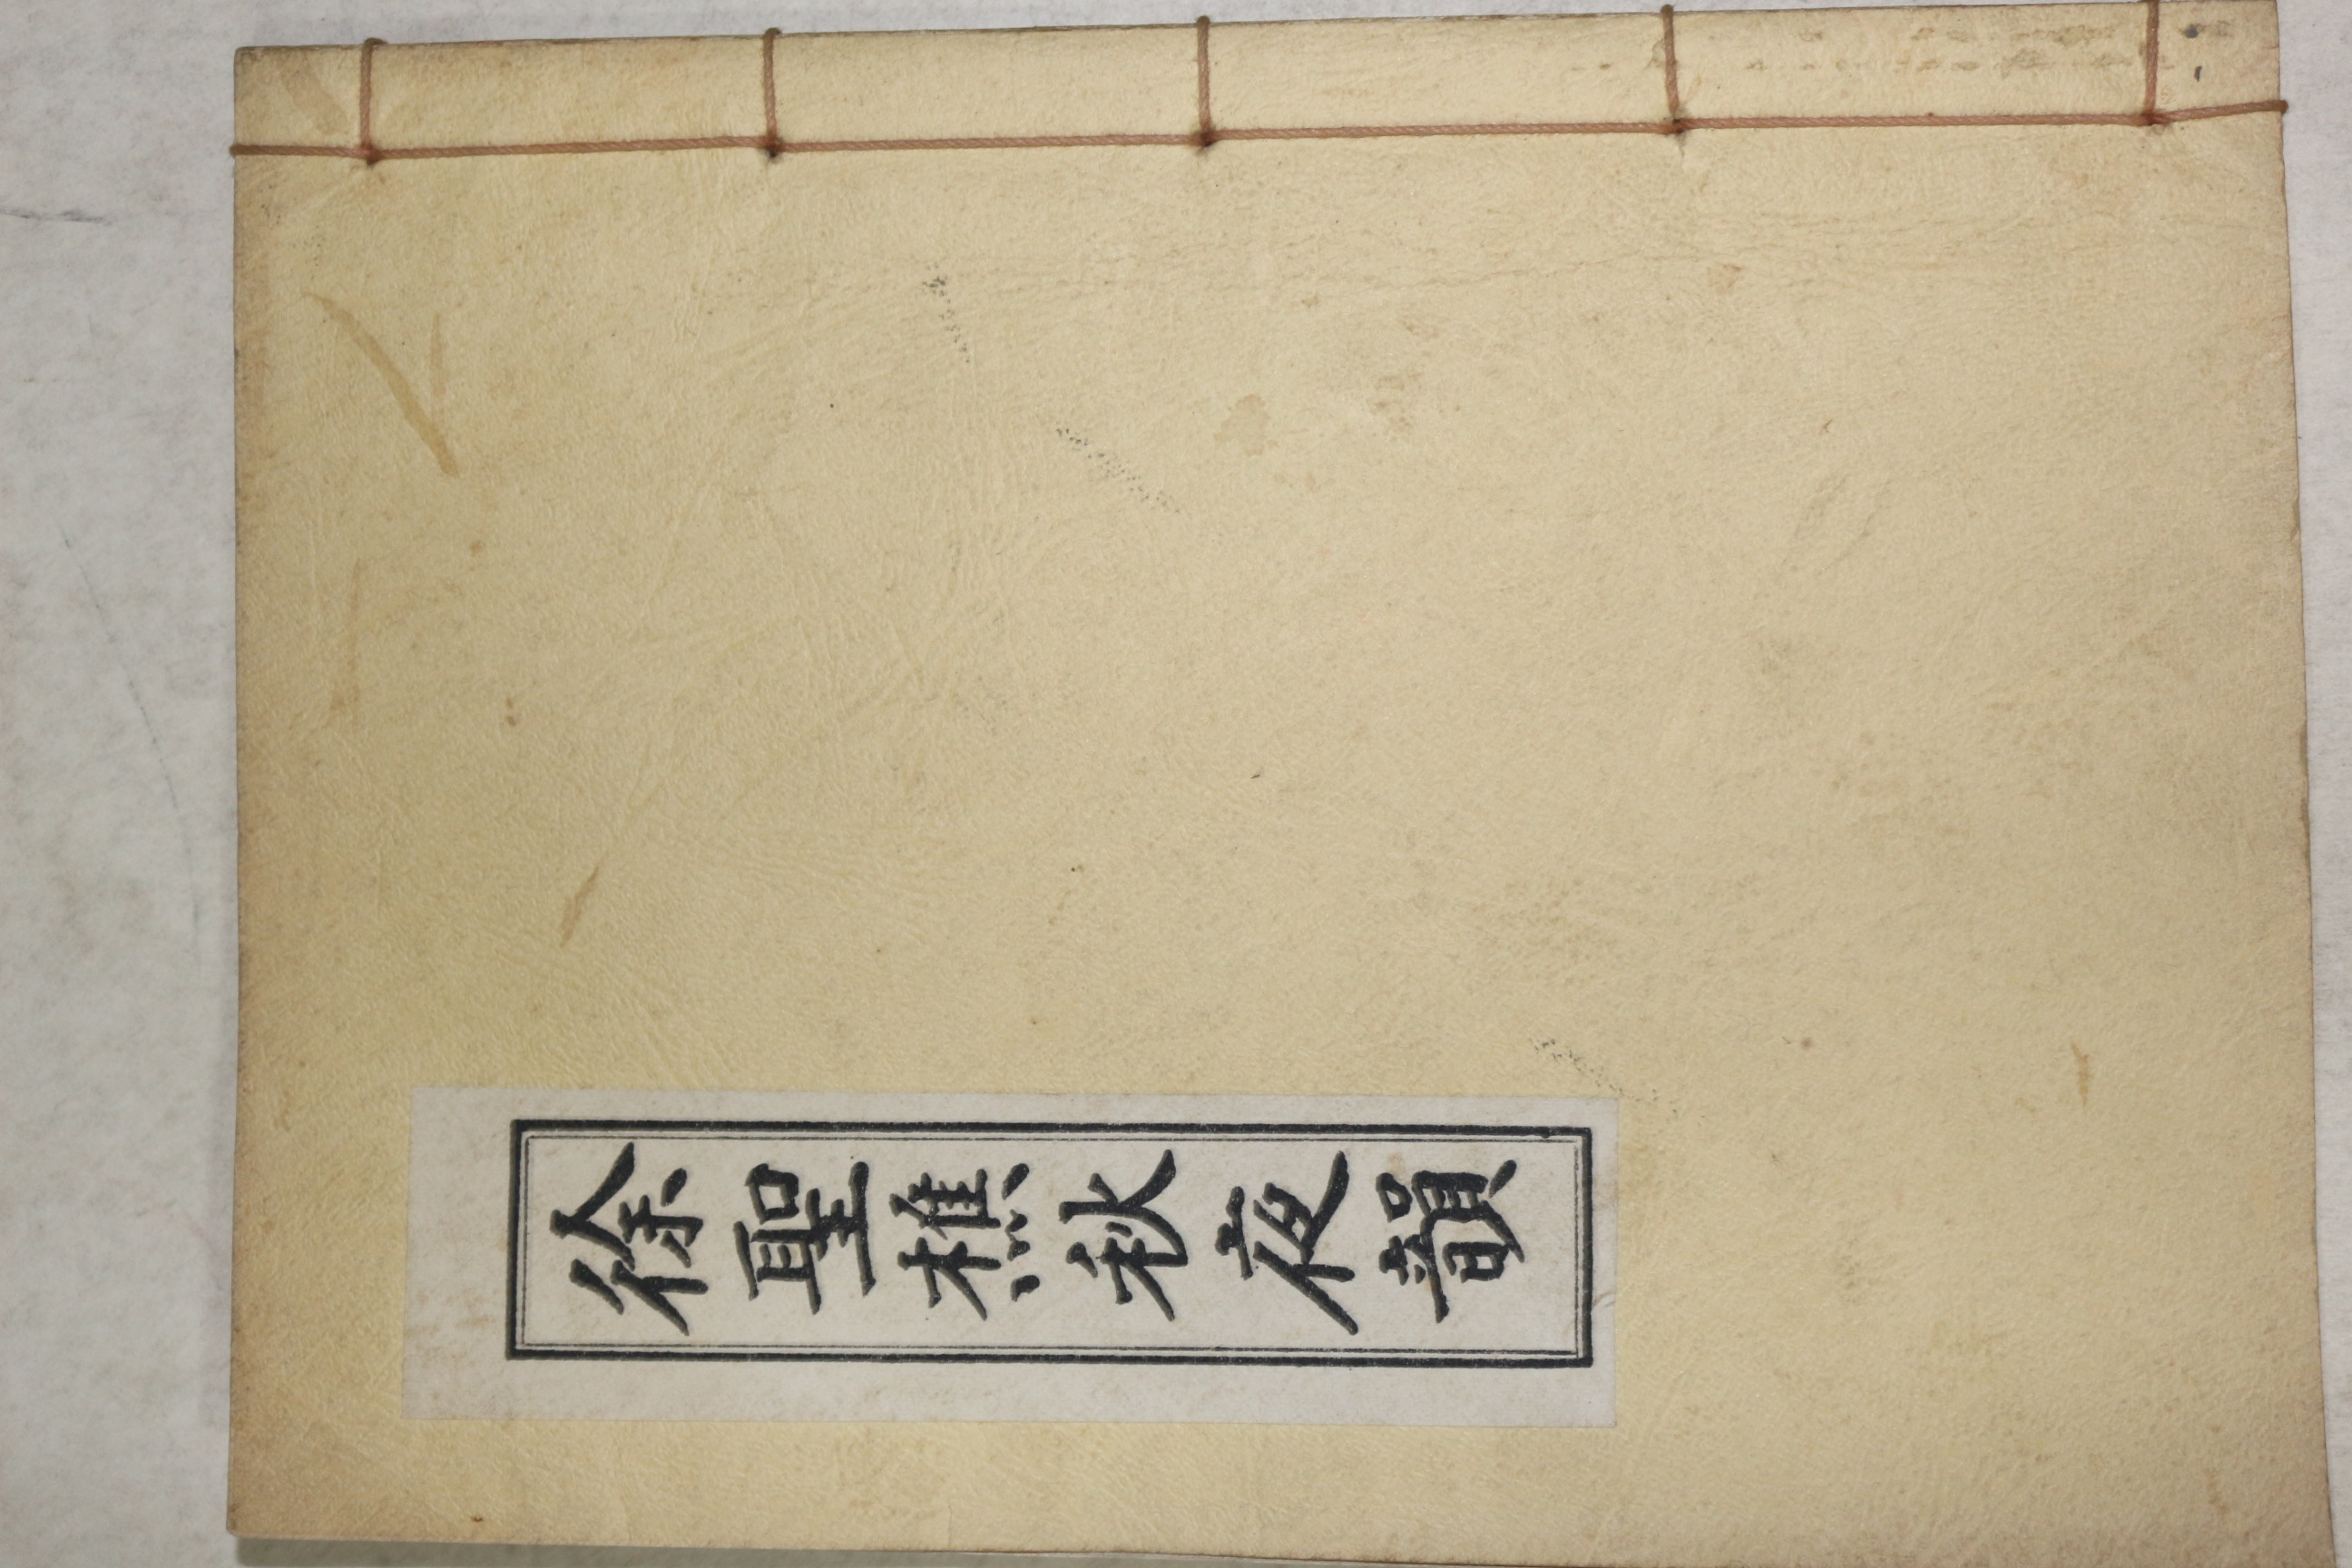 徐聖樵秋夜韻